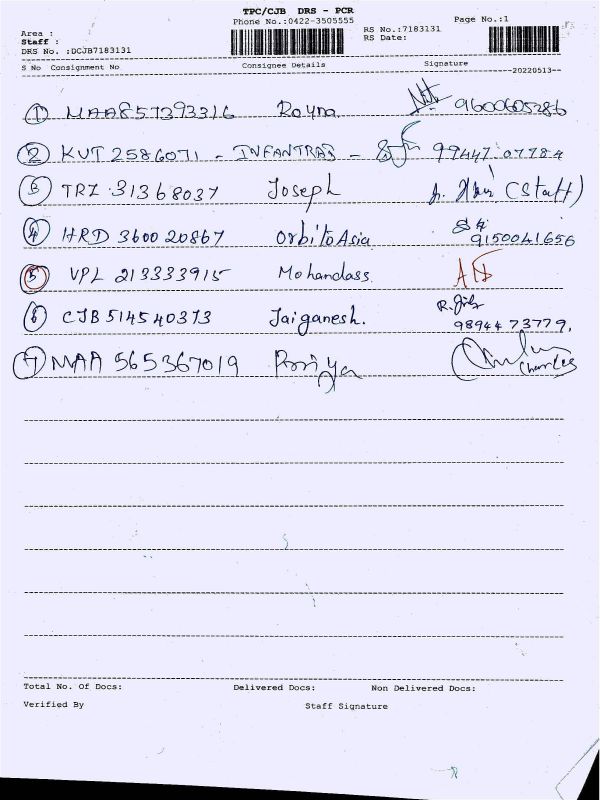 TPC/CJB DRS - PCR
Phone No.:0422-3505555
Page No.:1
Area :
Staff :
DRS No. :DCJB7183131
RS No.:7183131
RS Date:
S No Consignment No Consignee Details Signature
--20220513--
1 MAA857393316 Royna 9600605286
2 KVT 2586071 - INFANTRAJ - 99447 07784
3 TRZ 31368037 Joseph (Staff)
4 HRD 360020867 Orbito Asia
9150041656
5 VPL 213333915 Mohandass
6 CJB 514540373 Jaiganesh.
98944 73779,
7 MAA 565367019 Priya
Charles
Total No. Of Docs: Delivered Docs: Non Delivered Docs:
Verified By Staff Signature